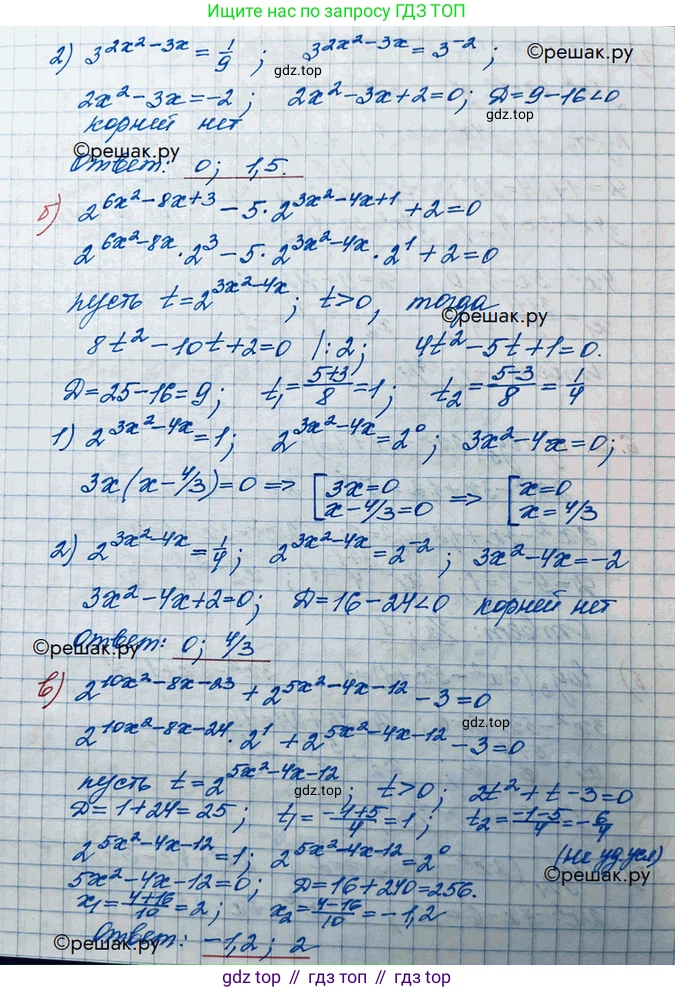 Ищите любую по запросу ГДЗ ТОП
2) 3^{2x²-3x} = 1/9 ; 3^{2x²-3x} = 3^{-2} ; ©решак.ру
gdz.top
2x²-3x=-2 ; 2x²-3x+2=0; D=9-16<0
gdz.top
корней нет
©решак.ру
Ответ: 0; 1,5.
б) 2^{6x²-8x+3} - 5·2^{3x²-4x+1} + 2 = 0
2^{6x²-8x}·2³ - 5·2^{3x²-4x}·2¹ + 2 = 0
пусть t=2^{3x²-4x}; t>0, тогда
©решак.ру
8t²-10t+2=0 |:2; 4t²-5t+1=0.
D=25-16=9; t₁=(5+3)/8=1; t₂=(5-3)/8=1/4
1) 2^{3x²-4x}=1; 2^{3x²-4x}=2⁰; 3x²-4x=0;
3x(x-4/3)=0 => [3x=0 => [x=0
x-4/3=0 x=4/3
2) 2^{3x²-4x}=1/4; 2^{3x²-4x}=2^{-2}; 3x²-4x=-2
3x²-4x+2=0; D=16-24<0 корней нет
©решак.ру
Ответ: 0; 4/3
в) 2^{10x²-8x-23} + 2^{5x²-4x-12} - 3 = 0
2^{10x²-8x-24}·2¹ + 2^{5x²-4x-12} - 3 = 0
пусть t=2^{5x²-4x-12}; t>0; 2t²+t-3=0
gdz.top
D=1+24=25; t₁=(-1+5)/4=1; t₂=(-1-5)/4=-6/4
2^{5x²-4x-12}=1; 2^{5x²-4x-12}=2⁰ (не уд.усл)
©решак.ру
5x²-4x-12=0; D=16+240=256.
x₁=(4+16)/10=2; x₂=(4-16)/10=-1,2
gdz.top
©решак.ру
Ответ: -1,2; 2
gdz top // гдз топ // gdz.top